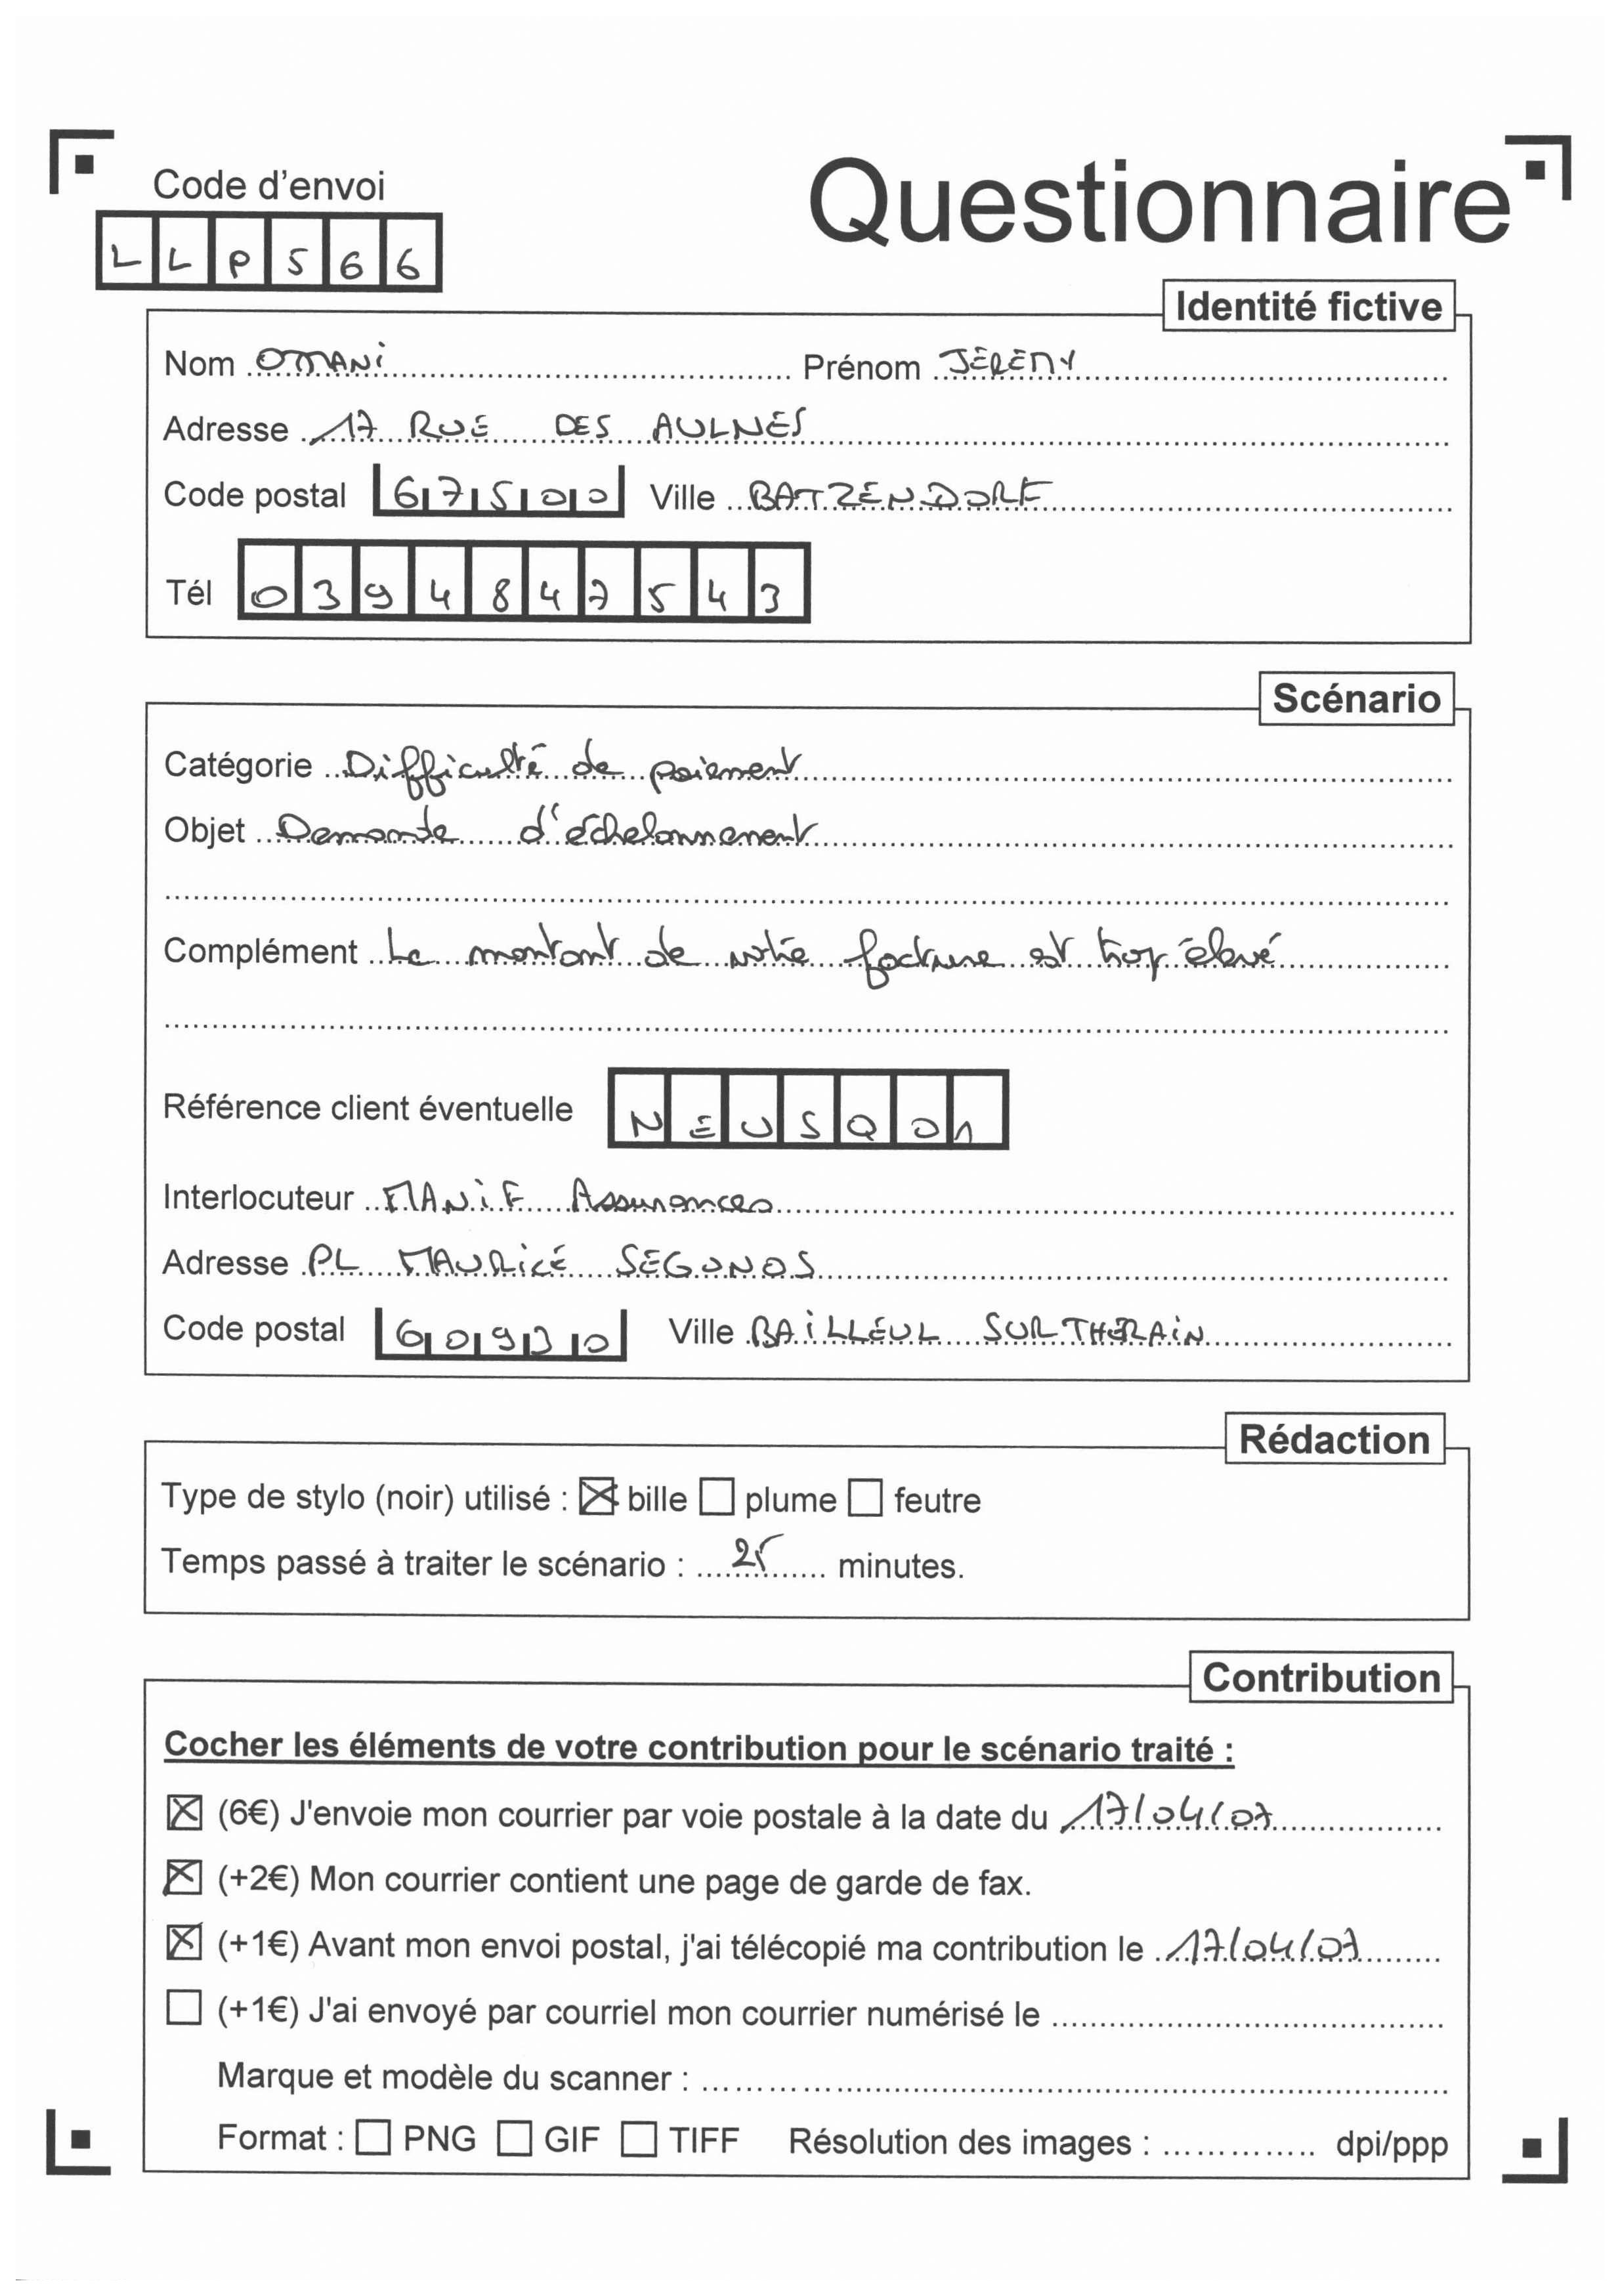 Code d'envoi
Questionnaire
LLP566
Identité fictive
Nom OMANi Prénom JÉRÉMY
Adresse 17 RUE DES AULNES
Code postal 67500 Ville BATZENDORF
Tél 0394847543
Scénario
Catégorie Difficulté de paiement
Objet Demande d'échelonnement
Complément Le montant de votre facture est trop élevé
Référence client éventuelle NEUSQ01
Interlocuteur MANiF Assurances
Adresse PL MAURiCE SEGONDS
Code postal 60930 Ville BAiLLEUL SUR THERAiN
Rédaction
Type de stylo (noir) utilisé : ☒ bille ☐ plume ☐ feutre
Temps passé à traiter le scénario : 25 minutes.
Contribution
Cocher les éléments de votre contribution pour le scénario traité :
☒ (6€) J'envoie mon courrier par voie postale à la date du 17/04/07
☒ (+2€) Mon courrier contient une page de garde de fax.
☒ (+1€) Avant mon envoi postal, j'ai télécopié ma contribution le 17/04/07
☐ (+1€) J'ai envoyé par courriel mon courrier numérisé le
Marque et modèle du scanner :
Format : ☐ PNG ☐ GIF ☐ TIFF Résolution des images : dpi/ppp